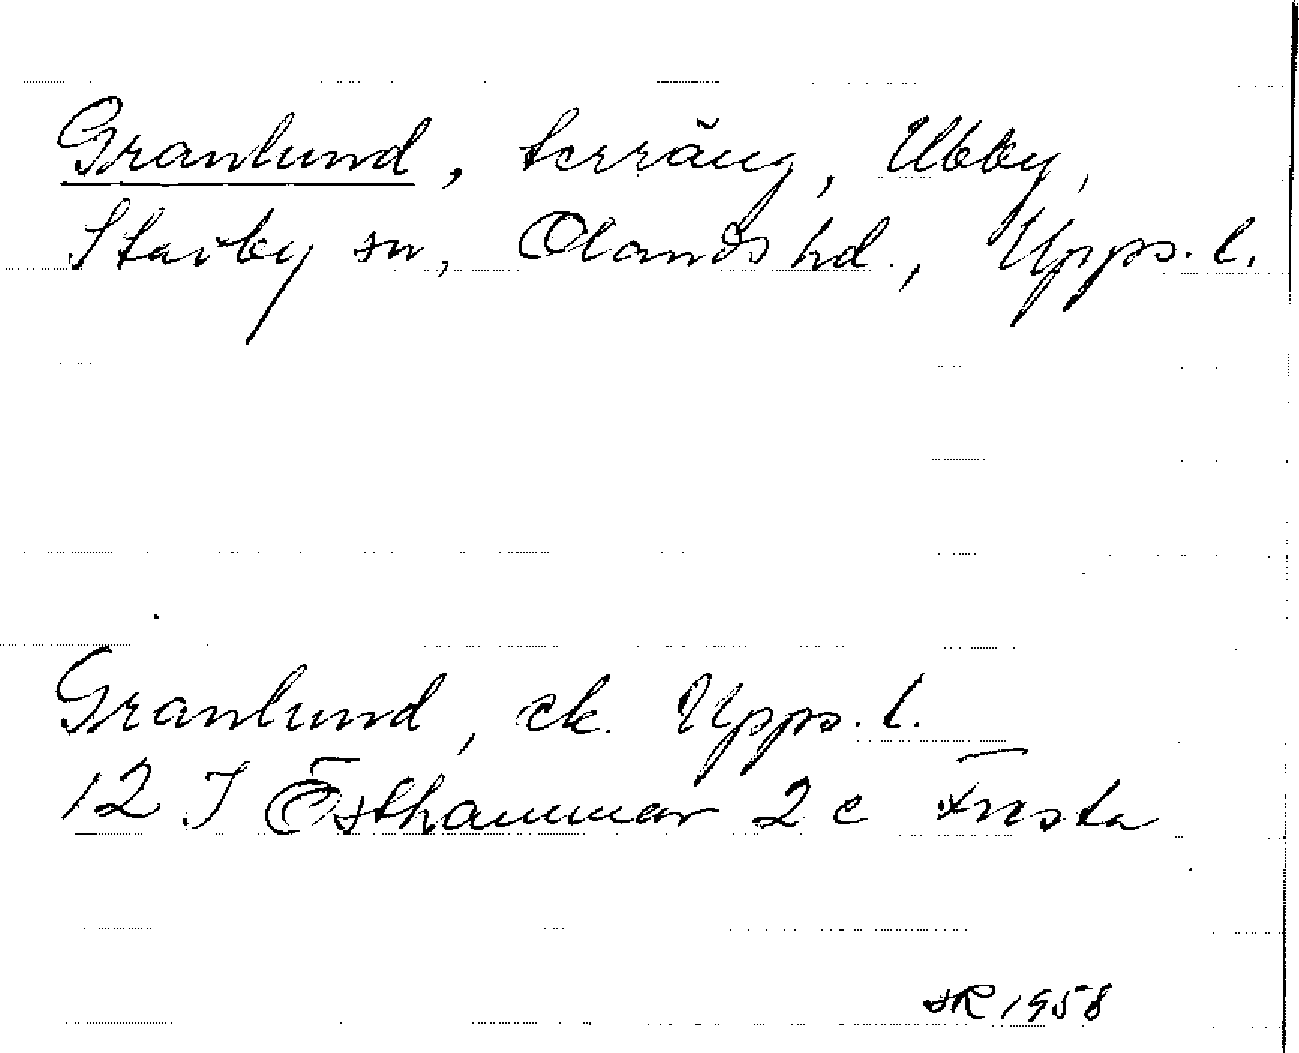 Granlund, terräng, Ubby,
Stavby sn, Olands hd., Upps. l.
Granlund, ek. Upps. l.
12 I Östhammar 2 c Fresta
SR 1958